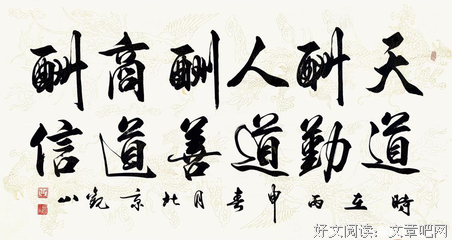 天道
酬勤
人道
酬善
商道
酬信
時在丙申春月北京觀山
好文阅读：文章吧网